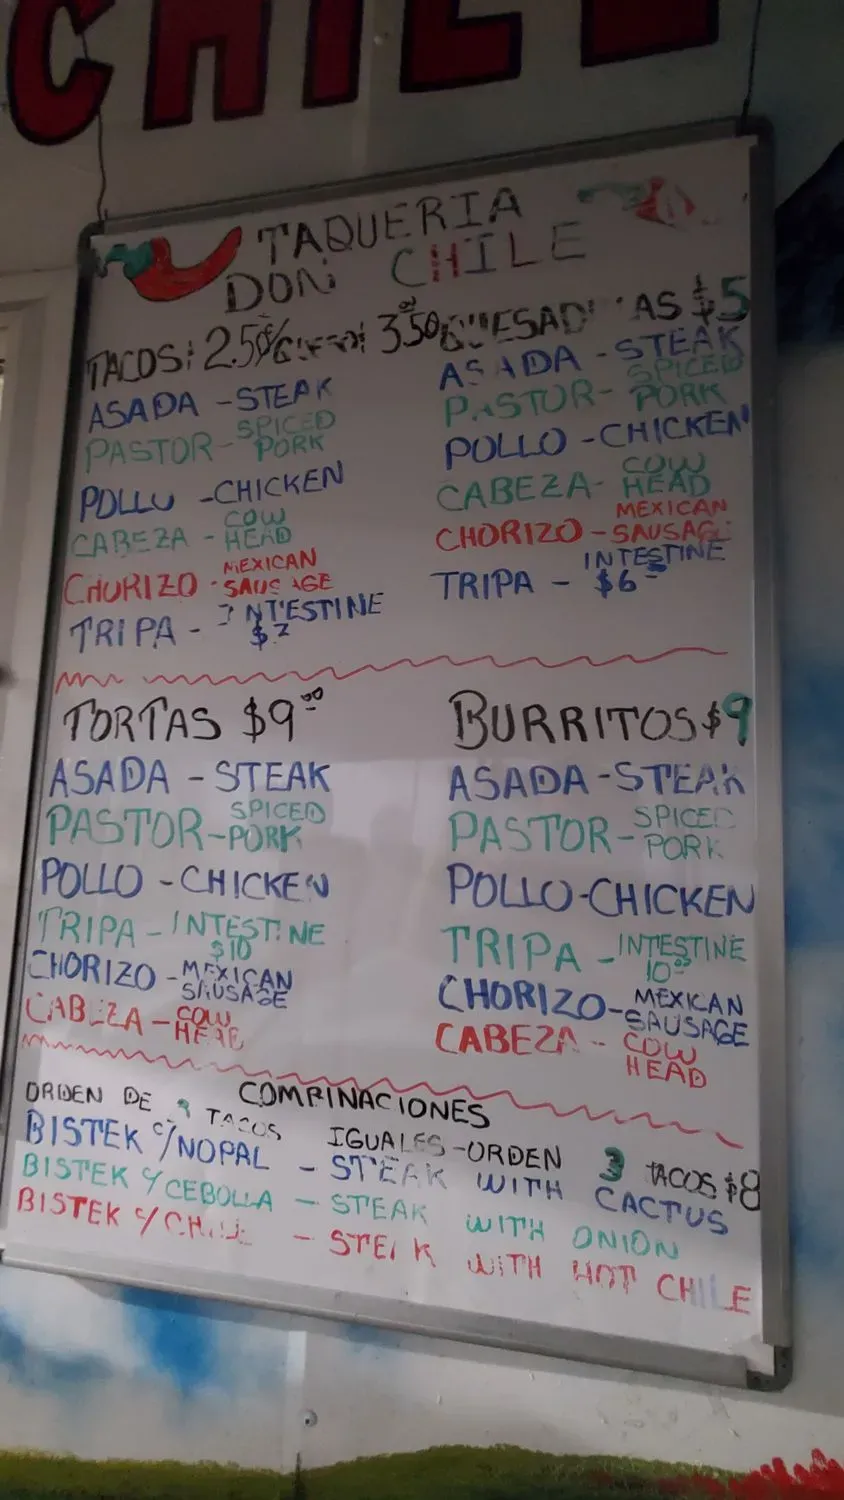 CHILE
TAQUERIA
DON CHILE
TACOS: 2.50 3.50
ASADA - STEAK
PASTOR - SPICED PORK
POLLO - CHICKEN
CABEZA - COW HEAD
CHORIZO - MEXICAN SAUSAGE
TRIPA - INTESTINE
QUESADILLAS $5
ASADA - STEAK
PASTOR - SPICED PORK
POLLO - CHICKEN
CABEZA - COW HEAD
CHORIZO - MEXICAN SAUSAGE
TRIPA - INTESTINE $6
TORTAS $9.00
ASADA - STEAK
PASTOR - SPICED PORK
POLLO - CHICKEN
TRIPA - INTESTINE $10
CHORIZO - MEXICAN SAUSAGE
CABEZA - COW HEAD
BURRITOS $9
ASADA - STEAK
PASTOR - SPICED PORK
POLLO - CHICKEN
TRIPA - INTESTINE 10.00
CHORIZO - MEXICAN SAUSAGE
CABEZA - COW HEAD
COMBINACIONES
ORDEN DE TACOS IGUALES - ORDEN 3 TACOS $8
BISTEK C/NOPAL - STEAK WITH CACTUS
BISTEK C/CEBOLLA - STEAK WITH ONION
BISTEK C/CHILE - STEAK WITH HOT CHILE